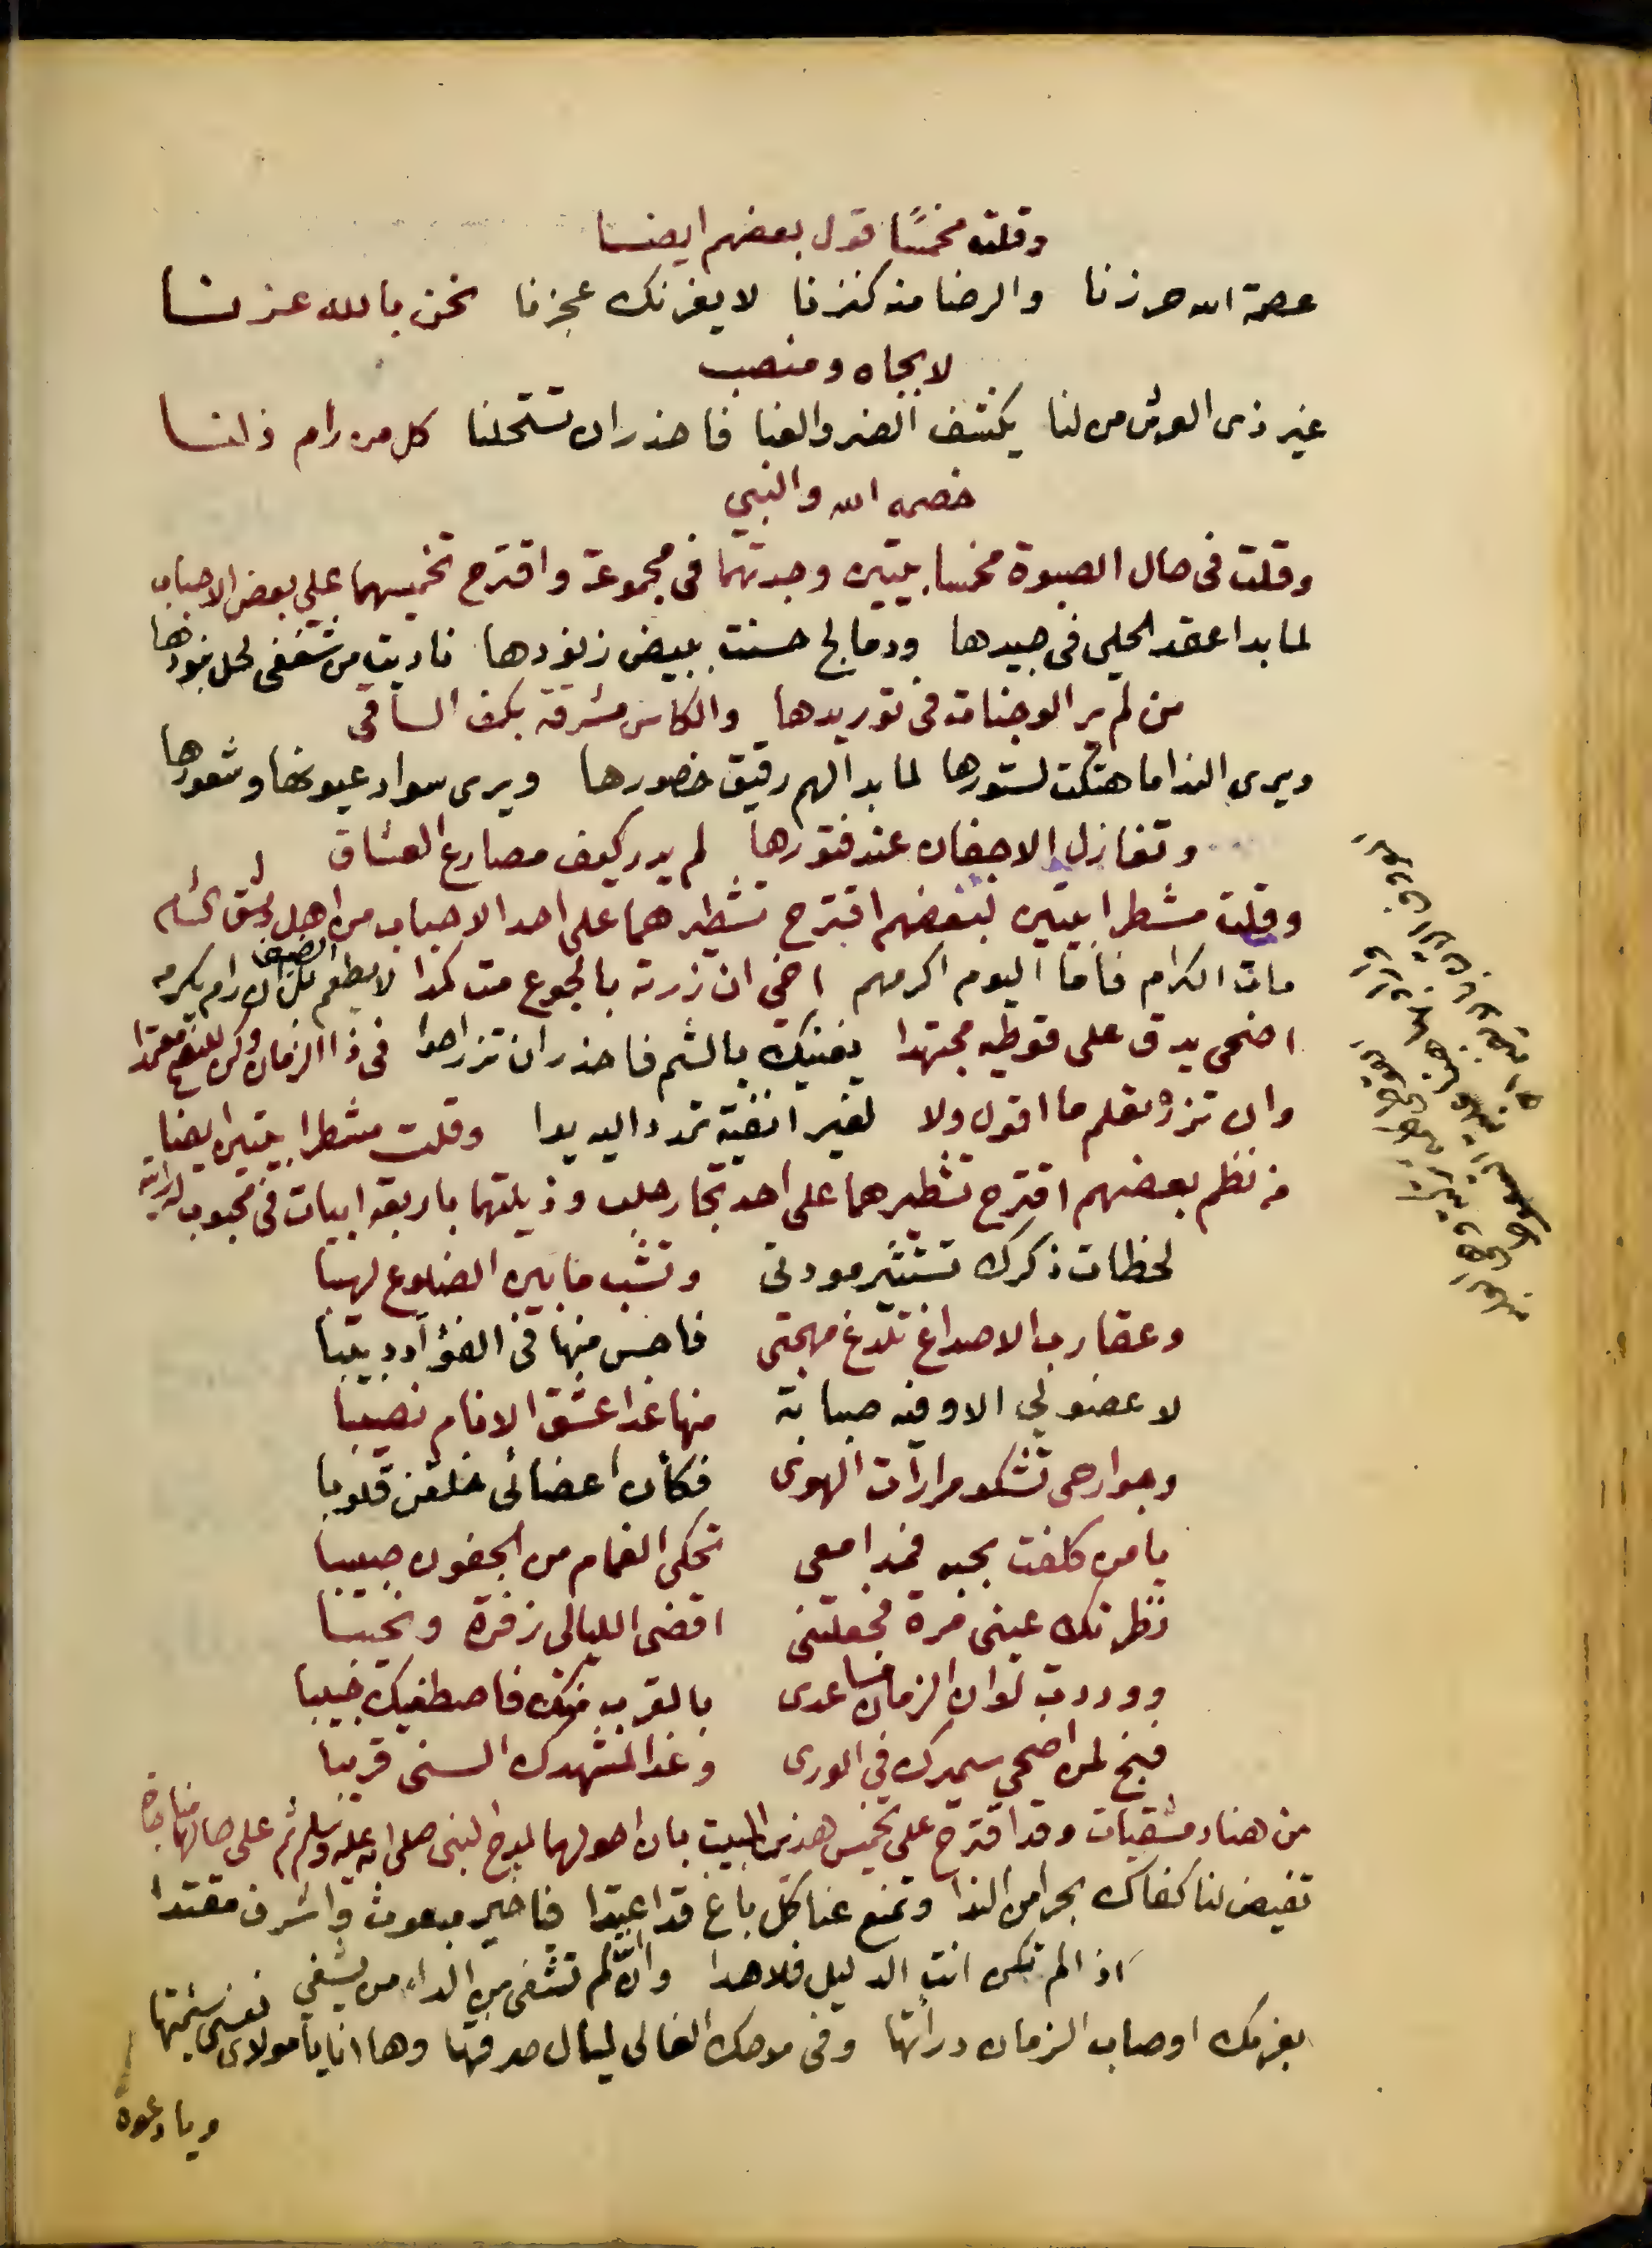 وقلت مخمسًا قول بعضهم ايضا
عصمة الله حرزنا والرضا منه كنزنا لا يغرنك عجزنا نحن بالله عزنا
لا بجاه ومنصب
غير ذي العرش من لنا يكشف الضر والعنا فاحذر ان تستحلنا كل من رام ذلنا
خصمه الله والنبي
وقلت في حال الصبوة مخمسا بيتين وجدتهما في مجموعة واقترح تخميسهما علي بعض الاحباب
لما بدا عقد الحلي في جيدها ودمالج حسنت ببيض زنودها ناديت من شغفي لحل بنودها
من لم ير الوجنات في توريدها والكاس مشرقة بكف الساقي
ويرى الندا ما هتكت لستورها لما بدا لهم رقيق خصورها ويرى سواد عيونها وشعورها
وتغازل الاجفان عند فتورها لم يدر كيف مصارع العشاق
وقلت مشطرا بيتين لبعضهم اقترح تشطيرهما على احد الاحباب من اهل دمشق الشام
مات الكرام فاما اليوم اكرمهم اخي ان زرته بالجوع مت كمدا لا يطعم الضيف لكن ان رام يكرمه
اضحى يدق على قوطيه مجتهدا يغنيك بالشم فاحذر ان تزر احدا في ذا الزمان وكن للنصح معتمدا
وان تزره تعلم ما اقول ولا لغير انفية تمدد اليه يدا وقلت مشطرا بيتين ايضا
من نظم بعضهم اقترح تشطيرهما على احد تجار حلب وذيلتهما باربعة ابيات في محبوب
لحظات ذكرك تستثير مودتي وتشب ما بين الضلوع لهيبا
وعقارب الاصداغ تلدغ مهجتي فاحس منها في الفؤآد دبيبا
لا عضو لي الا وفيه صبابة منها غدا عشق الانام نصيبا
وجوارحي تشكو مرارات الهوى فكأن اعضائي خلقن قلوبا
يا من كلفت بحبه فمدامعي تحكي الغمام من الجفون صبيبا
نظرتك عيني مرة فجعلتني اقضي الليالي زفرة ونحيبا
ووددت لو ان الزمان مساعدي بالقرب منك فاصطفيك حبيبا
فبخ لمن اضحى سميرك في الورى وغدا لمشهدك السني قريبا
من هنا دمشقيات وقد اقترح على تخميس هذين البيت بان احولهما لمدح النبي صلى الله عليه وسلم ثم على حالهما
تفيض لنا كفاك بحرا من الندا وتمنع عنا كل باغ قد اعتدا فيا خير مبعوث واشرف مقتدا
اذا لم تكن انت الدليل فلا هدا وان لم تشفى من الداء من يشفي
بعزمك اوصاب الزمان درأتها وفي مدحك الغالي ليال صرفتها وها انا يا مولاى نفسي سئمتها
ويا دعوة